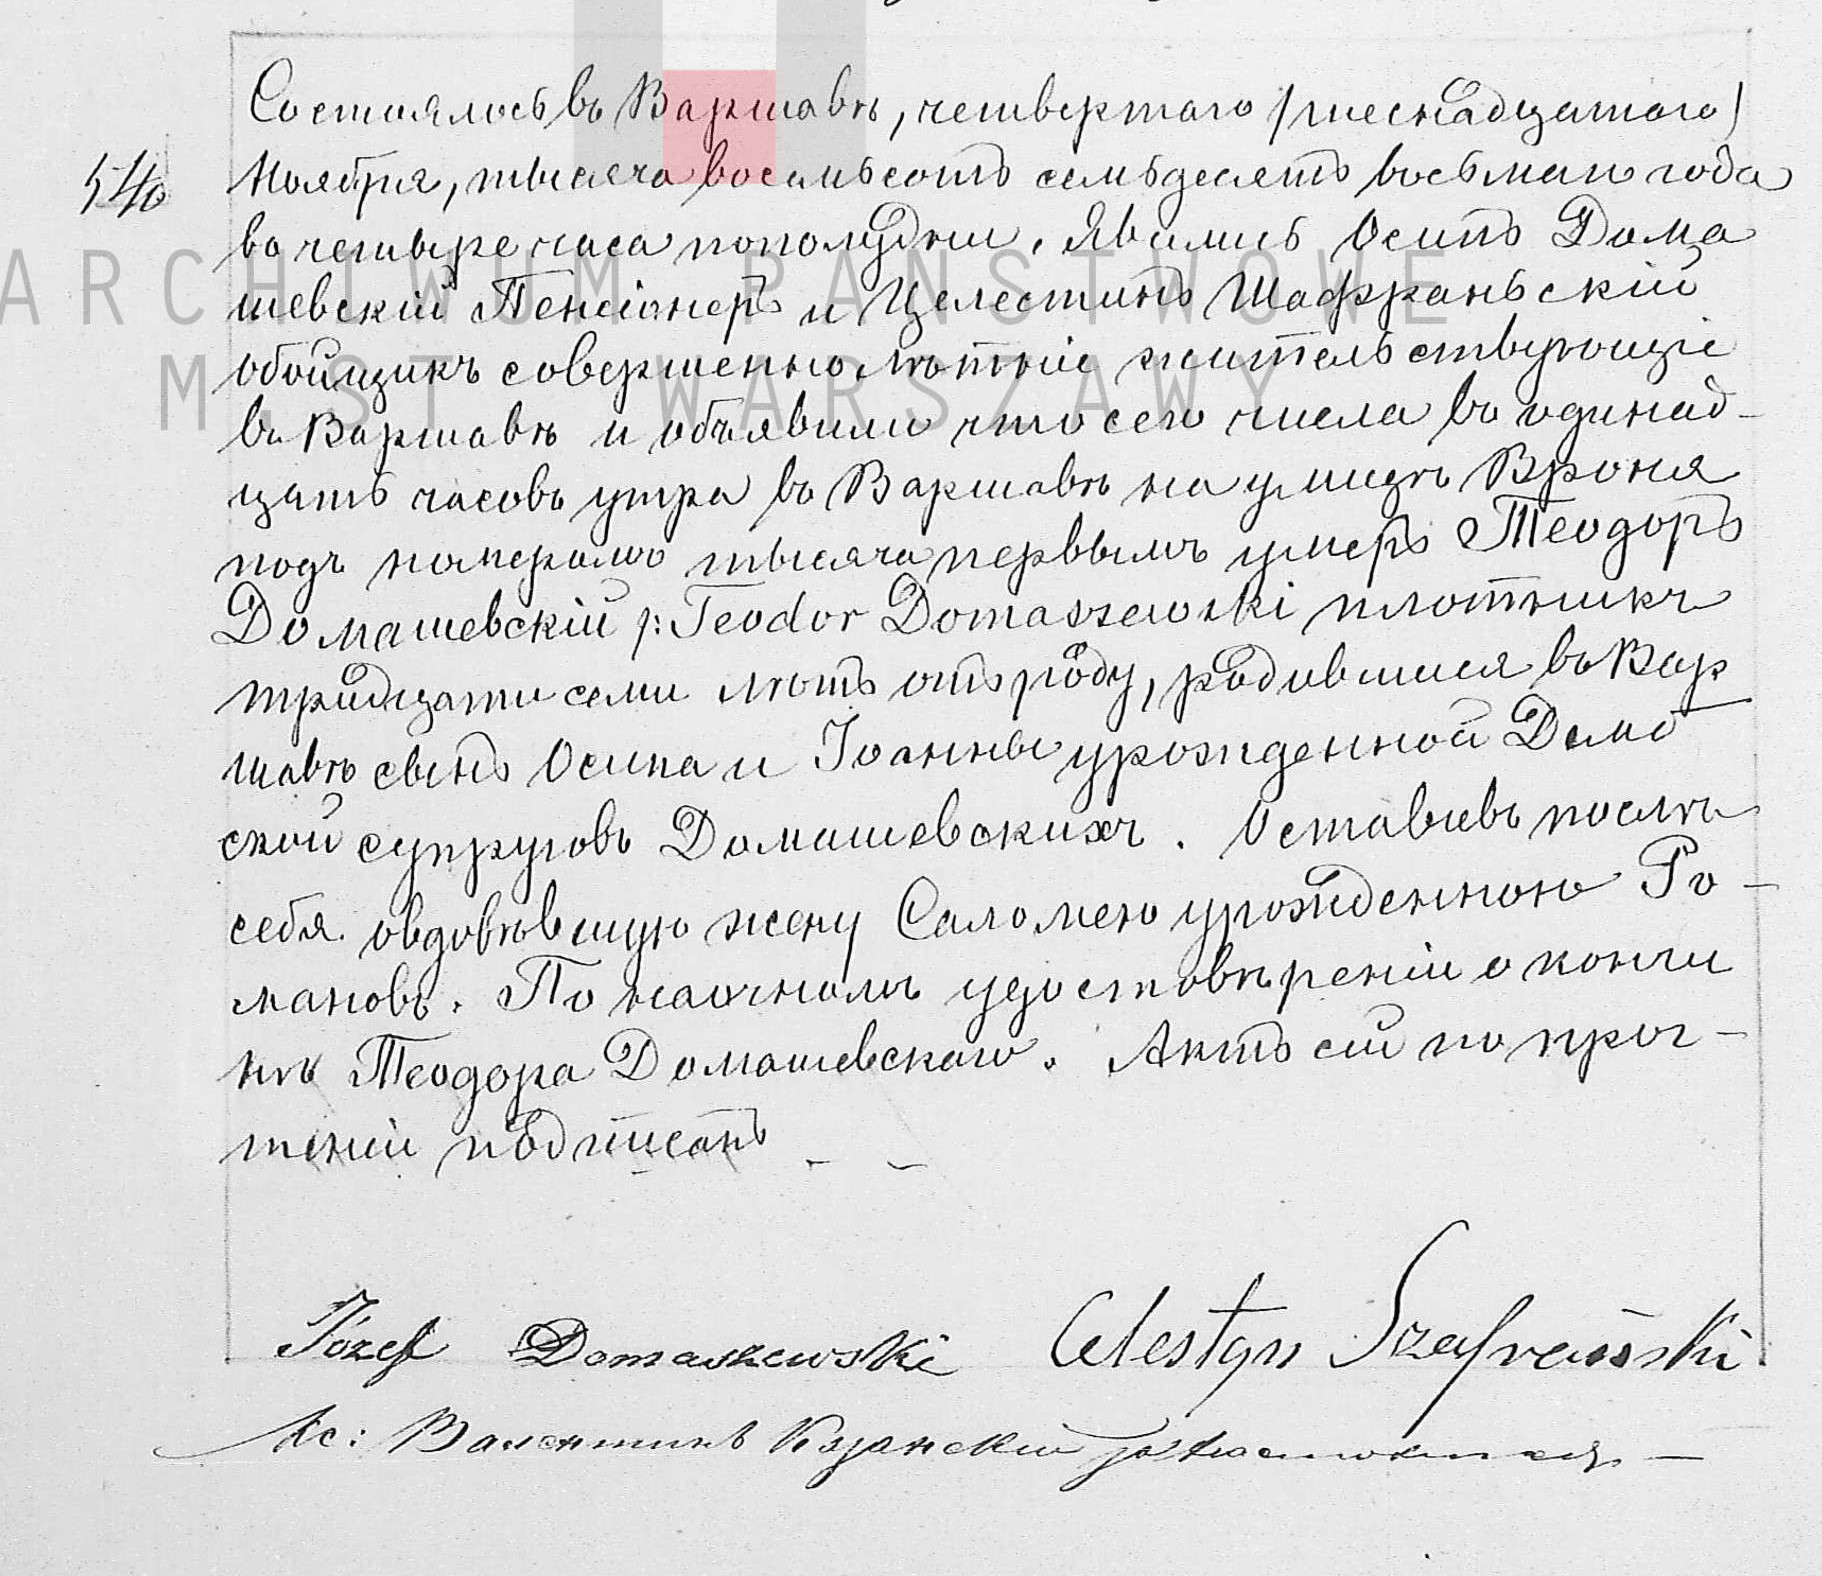 Состоялось въ Варшавѣ, четвертаго /шеснадцатаго/
540
Ноября, тысяча восемьсотъ семьдесятъ восьмаго года
въ четыре часа пополудни. Явились Осипъ Дома
шевскій Пенсіонеръ и Целестинъ Шафраньскій
обойщикъ совершеннолѣтніе жительствующіе
въ Варшавѣ и объявили что сего числа въ одинад-
цать часовъ утра въ Варшавѣ на улицѣ Вроня
подъ номеромъ тысяча первымъ умеръ Теодоръ
Домашевскій /: Teodor Domaszewski плотникъ
тридцати семи лѣтъ отъ роду, родившися въ Вар
шавѣ сынъ Осипа и Іоанны урожденной
ской супруговъ Домашевскихъ. Оставивъ послѣ
себя овдовѣвшую жену Саломею урожденную Ро-
мановъ. По наочномъ удостовѣреніи о кончи
нѣ Теодора Домашевскаго. Актъ сій по проч-
теніи подписанъ
Józef Domaszewski Celestyn Szafrański
Кс: Валентинъ
ARCHIWUM PAŃSTWOWE
M.ST. WARSZAWY